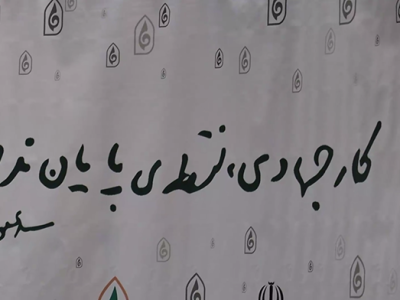 کار جهادی، نقطه‌ی پایان